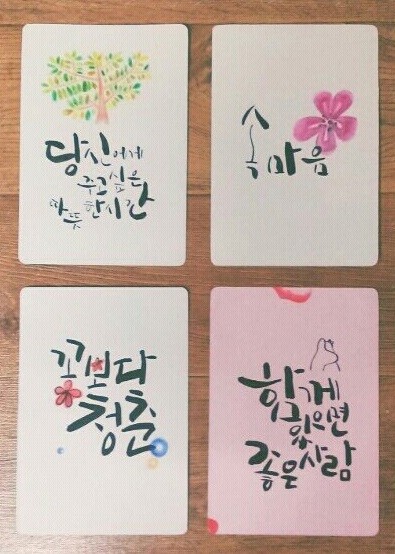 당신에게
주고싶은
따뜻한시간
속마음
꽃보다
청춘
함께
있으면
좋은사람